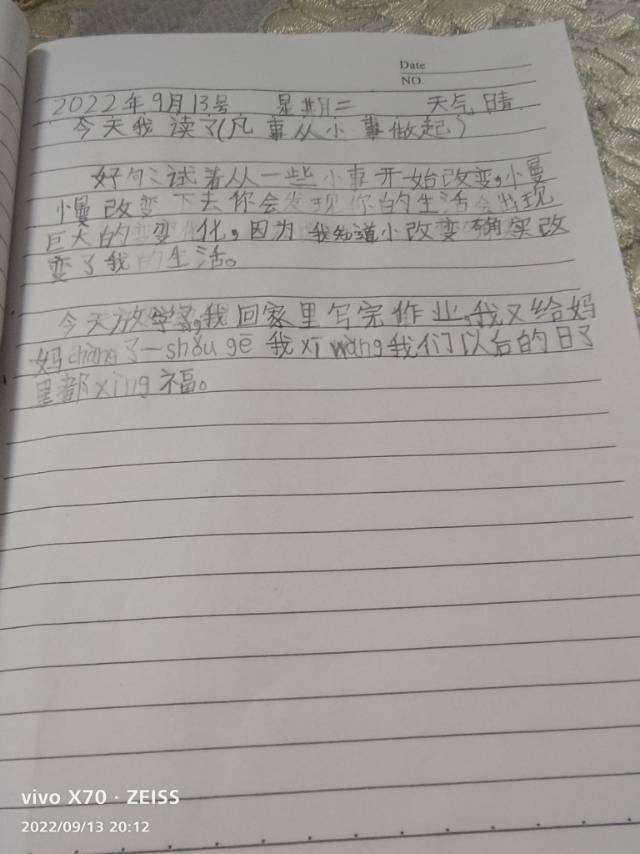 Date
NO.
2022年9月13号 星期二 天气晴
今天我读了(凡事从小事做起)
好句:试着从一些小事开始改变,慢
慢改变下去你会发现你的生活会出现
巨大的变化,因为我知道小改变确实改
变了我的生活。
今天放学了,我回家里写完作业,我又给妈
妈chàng了一shǒu gē 我xī wàng我们以后的日子
里都xìng福。
vivo X70 · ZEISS
2022/09/13 20:12